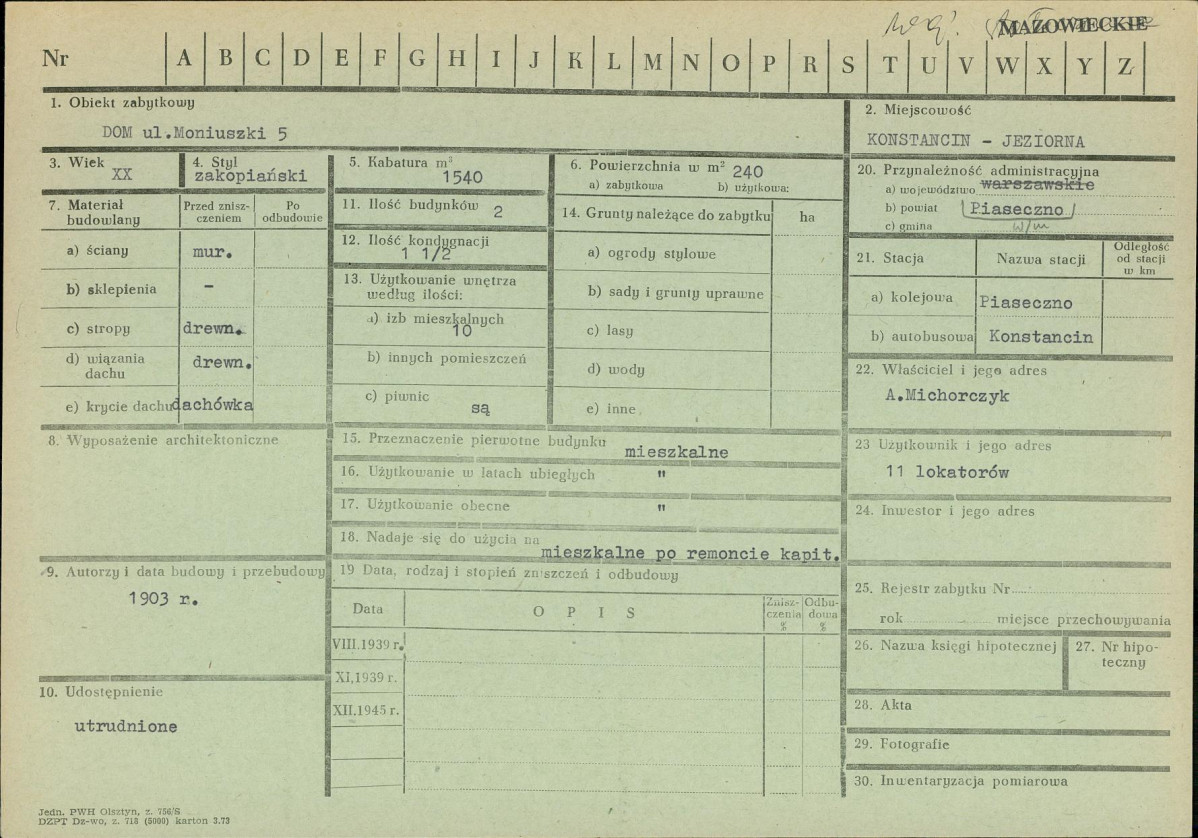 MAZOWIECKIE
Nr A B C D E F G H I J K L M N O P R S T U V W X Y Z
1. Obiekt zabytkowy
DOM ul.Moniuszki 5
2. Miejscowość
KONSTANCIN - JEZIORNA
3. Wiek
XX
4. Styl
zakopiański
5. Kabatura m³
1540
6. Powierzchnia w m² 240
a) zabytkowa b) użytkowa:
20. Przynależność administracyjna
a) województwo warszawskie
b) powiat Piaseczno
c) gmina w/m
7. Materiał budowlany
Przed zniszczeniem
Po odbudowie
a) ściany mur.
b) sklepienia -
c) stropy drewn.
d) wiązania dachu drewn.
e) krycie dachu dachówka
11. Ilość budynków 2
12. Ilość kondygnacji
1 1/2
13. Użytkowanie wnętrza
według ilości:
a) izb mieszkalnych
10
b) innych pomieszczeń
c) piwnic
są
14. Grunty należące do zabytku ha
a) ogrody stylowe
b) sady i grunty uprawne
c) lasy
d) wody
e) inne
21. Stacja Nazwa stacji
Odległość
od stacji
w km
a) kolejowa Piaseczno
b) autobusowa Konstancin
22. Właściciel i jego adres
A.Michorczyk
8. Wyposażenie architektoniczne
15. Przeznaczenie pierwotne budynku
mieszkalne
16. Użytkowanie w latach ubiegłych "
17. Użytkowanie obecne "
18. Nadaje się do użycia na
mieszkalne po remoncie kapit.
23 Użytkownik i jego adres
11 lokatorów
24. Inwestor i jego adres
9. Autorzy i data budowy i przebudowy
1903 r.
19 Data, rodzaj i stopień zniszczeń i odbudowy
Data O P I S
Zniszczenia
%
Odbudowa
%
VIII.1939 r.
XI,1939 r.
XII.1945 r.
25. Rejestr zabytku Nr
rok miejsce przechowywania
26. Nazwa księgi hipotecznej
27. Nr hipoteczny
10. Udostępnienie
utrudnione
28. Akta
29. Fotografie
30. Inwentaryzacja pomiarowa
Jedn. PWH Olsztyn, z. 756/S
DZPT Dz-wo, z. 718 (5000) karton 3.73